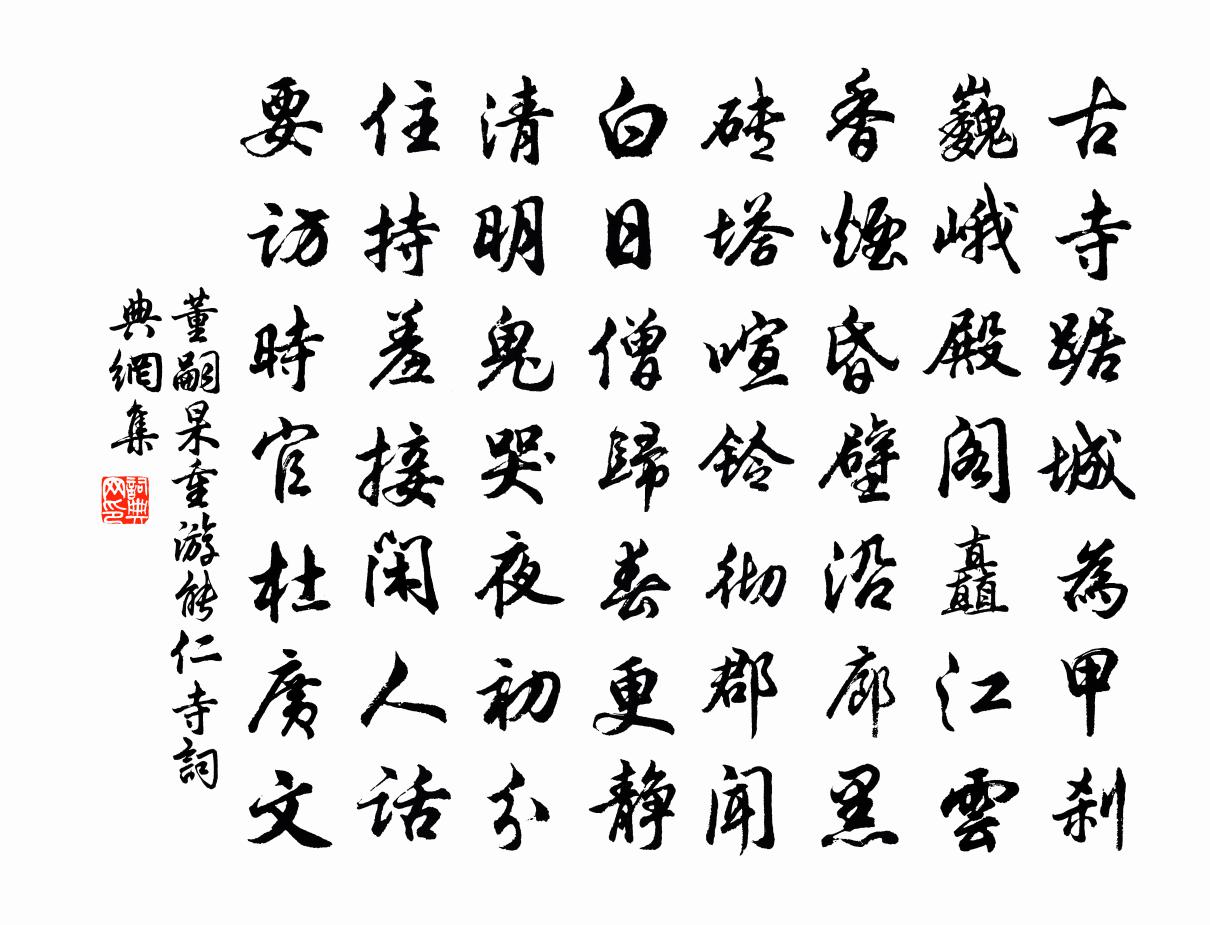 古寺踞城為甲刹
巍峨殿閣矗江雲
香煙昏壁沿廊黑
磚塔喧鈴彻郡聞
白日僧歸春更静
清明鬼哭夜初分
住持羞接闲人話
要訪時官杜廣文
董嗣杲重游能仁寺詞
典網集
詞典网印